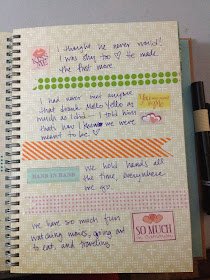 I thought he never would!
I was shy too ♡ He made
the first move.
I had never met anyone
that drank Mello Yello as
much as I did – I told him
thats how I knew we were
meant to be. ♡
You and me
HAND IN HAND
We hold hands all
the time, everywhere
we go.
We have so much fun
watching movies, going out
to eat, and traveling.
SO MUCH